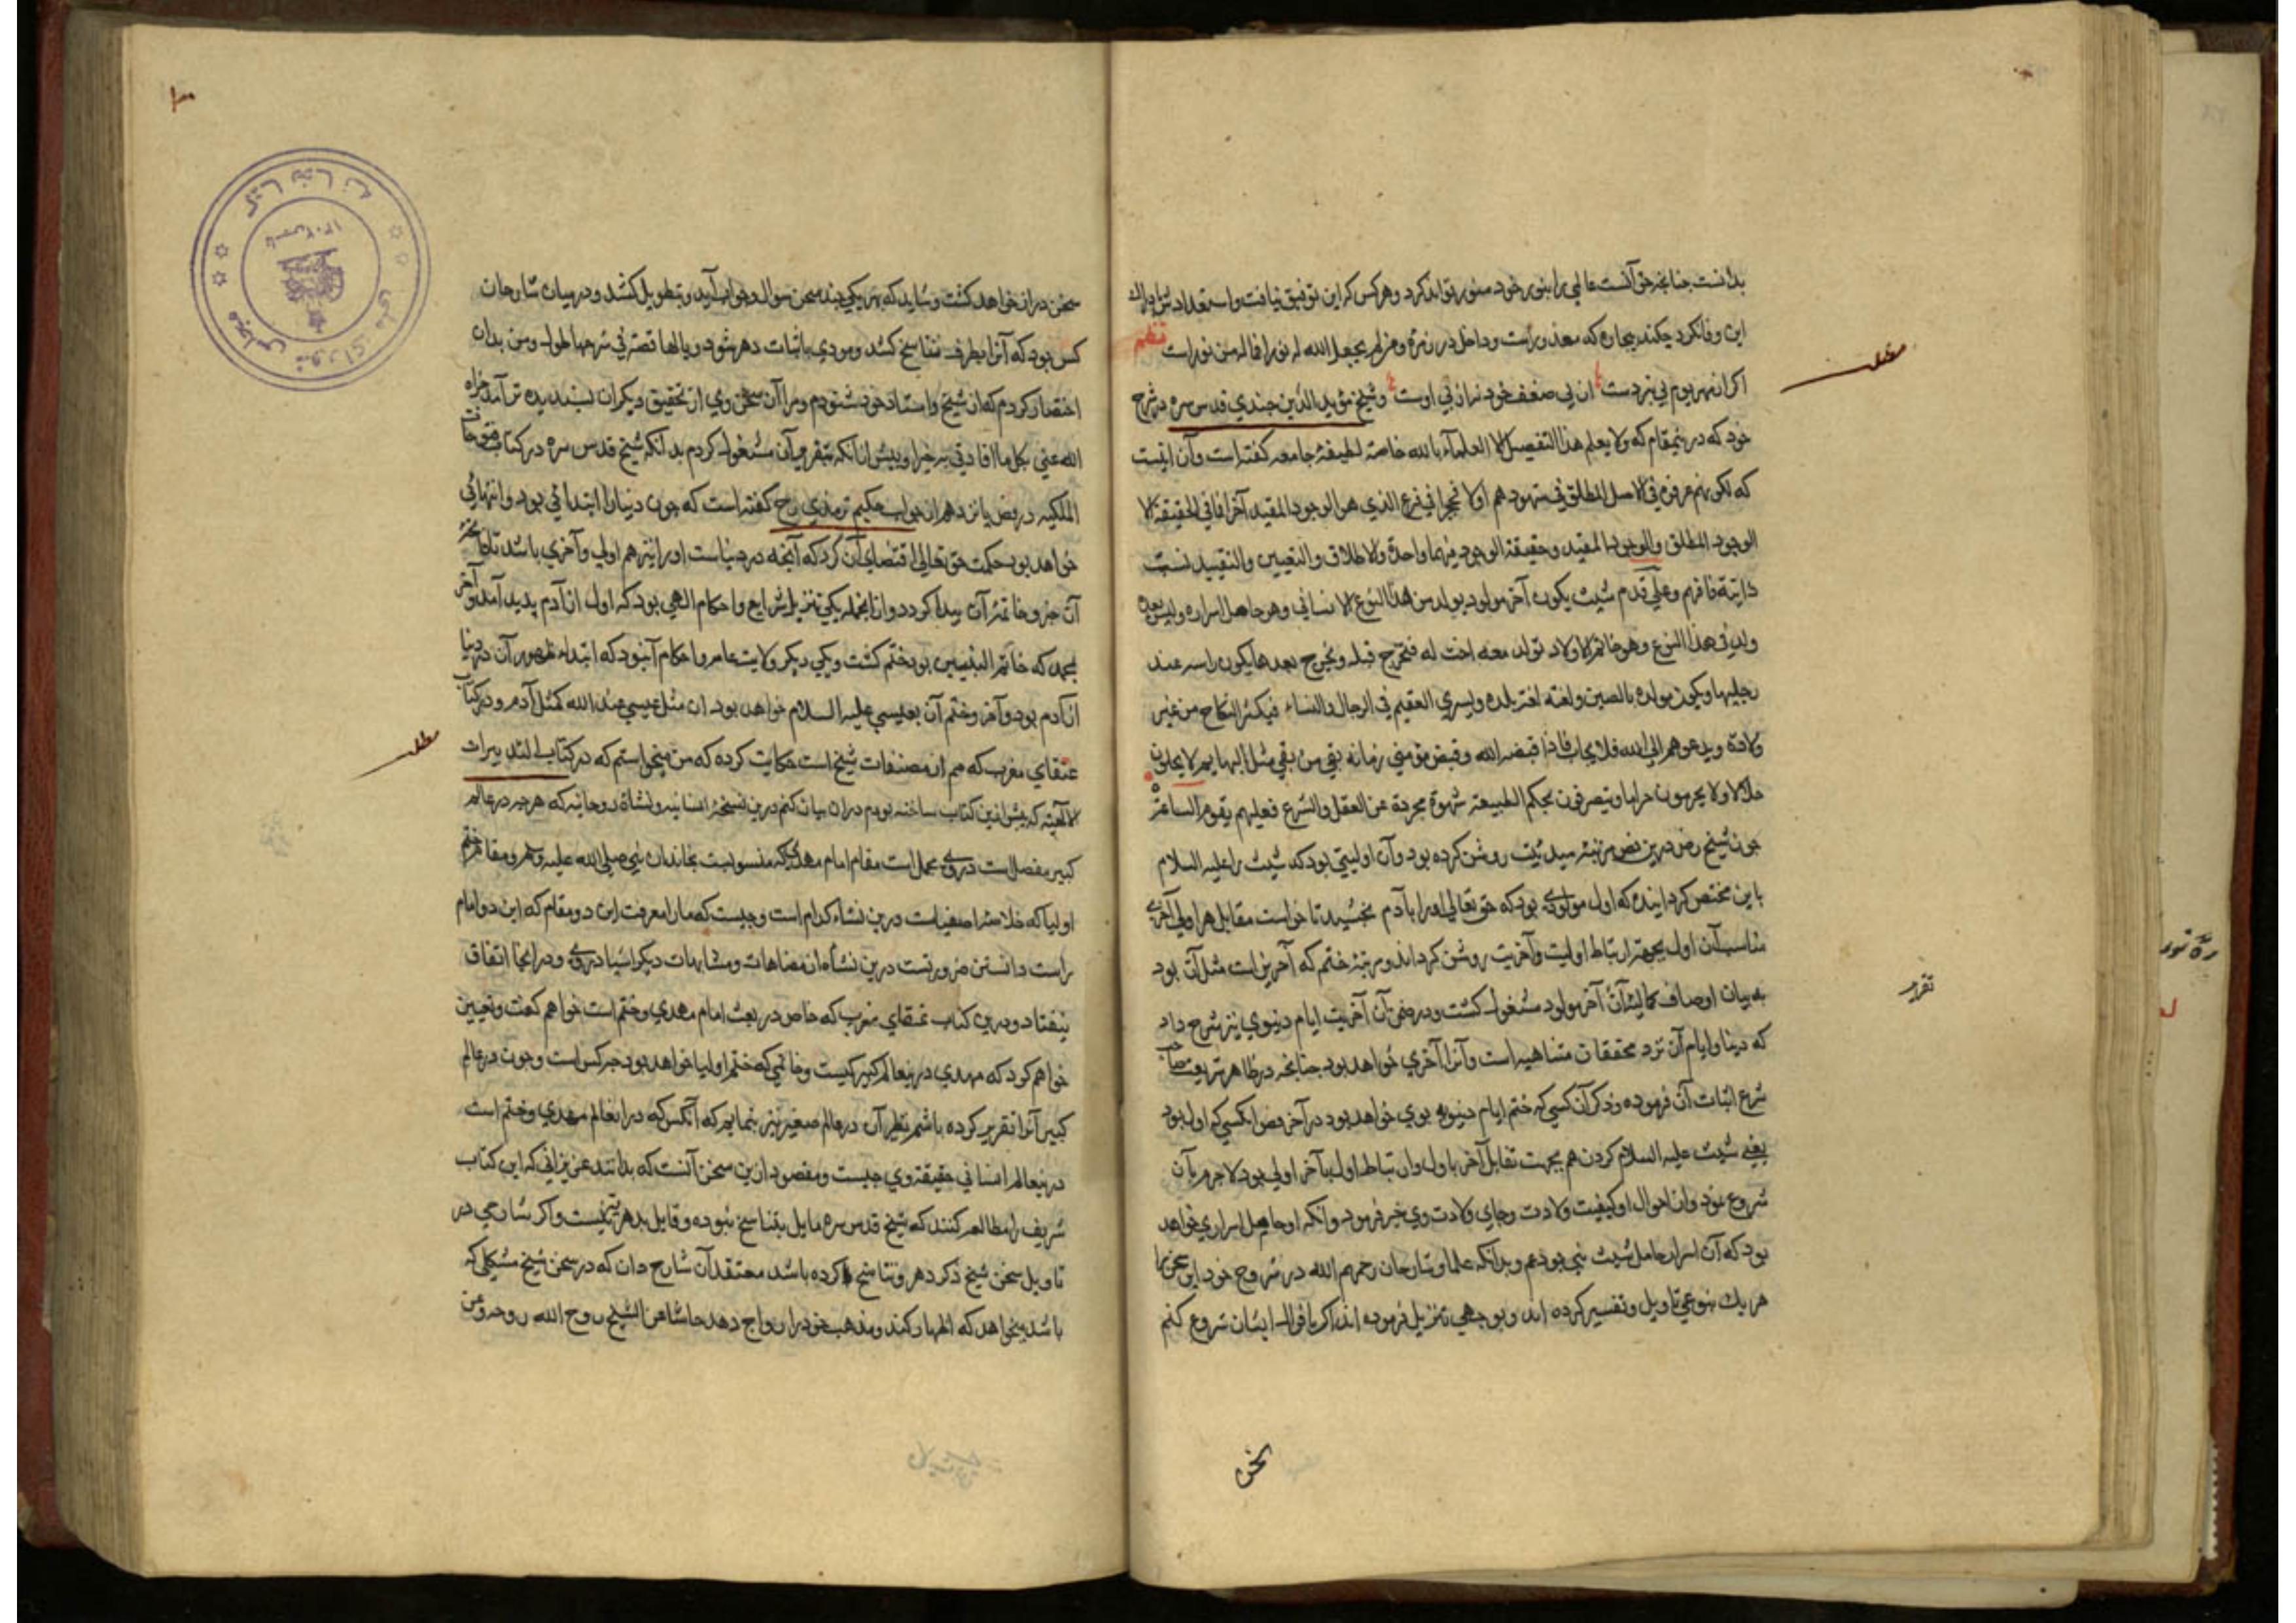 بدانست چنانچه حق آنست عالمی را بنور خود منور تواند کرد و هر کس که این توفیق نیافت و استعداد
این وفا نکرد چکند بیچاره که معذورست و داخل در زمره و من لم یجعل الله له نورا فما له من نور است
نظم
مطلب
و شیخ مؤید الدین جندی قدس سره در شرح
خود که درینمقام که ولا یعلم هذا التفصیل الا العلماء بالله خاصة لطیفهٔ جامعه گفته است و آن اینست
الذي هو الوجود المقید آخرا فما في الحقیقة الا
الوجود المطلق والوجود المقید وحقیقة الوجود فیهما واحدة والاطلاق والتعیین والتقیید نسب
ذاتیة فافهم وعلی قدم شیث یکون آخر مولود یولد من هذا النوع الانساني وهو حامل اسراره ولیس بعده
ولد في هذا النوع وهو خاتم الاولاد تولد معه اخت له فتخرج قبله ویخرج بعدها یکون راسه عند
رجلیها ویکون مولده بالصین ولغته لغة بلده ویسري العقم في الرجال والنساء فیکثر النکاح من غیر
ولادة ویدعوهم الی الله فلا یجاب فاذا قبضه الله وقبض مؤمني زمانه بقي من بقي مثل البهایم لا یحلون
حلالا ولا یحرمون حراما ویتصرفون بحکم الطبیعة شهوة مجردة عن العقل والشرع فعلیهم یقوم الساعة
چون شیخ رض درین فص مرتبهٔ مبدئیت روشن کرده بود و آن اولیتی بود که شیث را علیه السلام
باین مختص گردانیده که اول مولودی بود که حق تعالی او را بآدم بخشید تا خواست مقابل هر اولی آخری
مناسب آن اول بجهة ارتباط اولیت و آخریت روشن گرداند و مرتبهٔ ختم که آخرین است مثل آن بود
به بیان اوصاف کمالیهٔ آن آخر مولود مشغول گشت و در ضمن آن آخریت ایام دنیوی نیز شرح داد
تقریر
که دنیا و ایام آن نزد محققان متناهیه است و آنرا آخری خواهد بود چنانچه در ظاهر شریعت صاحب
شرع اثبات آن فرموده و ذکر آن کسی که ختم ایام دنیویه بوی خواهد بود در آخر فص آنکسی که اول بود
یعنی شیث علیه السلام کردن هم بجهت تقابل آخر باول و ارتباط اول بآخر اولی بود لاجرم بآن
شروع نمود و از احوال او کیفیت ولادت و جای ولادت وی خبر فرمود و آنکه او حامل اسراری خواهد
بود که آن اسرار حامل شیث نبی بود عم و بدانکه علما و شارحان رحمهم الله در شروح خود این سخن را
هر یک بنوعی تاویل و تفسیر کرده اند و بوجهی تنزیل فرموده اند اگر باقوال ایشان شروع کنم
سخن
سخن دراز خواهد گشت و شاید که بهر یکی چند سخن سوال و جواب آید و بتطویل کشد و در میان شارحان
کس بود که آنرا بطرف تناسخ کشد و مودی باثبات دهر شود و من بدان
اختصار کردم که از شیخ و استاد خود شنودم و مرا آن سخن وی از تحقیق دیگران پسندیده تر آمد جزاه
الله عني بکل ما افادنی خیرا و پیش از آنکه بتقریر آن مشغول گردم بدانکه شیخ قدس سره در کتاب فتوحات
المکیه در فص پانزدهم از جواب حکیم ترمذی رح گفته است که چون دنیا را ابتدائی بود و انتهائی
خواهد بود حکمت حق تعالی اقتضای آن کرد که آنچه در دنیاست او را نیز هم اولی و آخری باشد تا
آن جز و خاتمهٔ آن پیدا گردد و از آنجمله یکی تنزیل شرایع و احکام الهی بود که اول از آدم پدید آمد و آخر
بمحمد که خاتم النبیین بود ختم گشت و یکی دیگر ولایت عام و احکام آنبود که ابتداء ظهور آن در دنیا
از آدم بود و آخر و ختم آن بعیسی علیه السلام خواهد بود ان مثل عیسی عند الله کمثل آدم و در کتاب
مطلب
عنقای مغرب که هم از مصنفات شیخ است حکایت کرده که من میخواستم که در کتاب التدبیرات
الالٓهیه که پیش ازین کتاب ساخته بودم در آن بیان کنم درین نسخهٔ انسانیه و نشاة روحانیه که هر چه در عالم
کبیر مفصل است در وی مجمل است مقام امام مهدی که منسوبست بخاندان نبی صلی الله علیه وسلم و مقام ختم
اولیا که خلاصهٔ اصفیاست درین نشاء کدام است و چیست که ما را معرفت این دو مقام که این دو امام
راست دانستن ضرورتست درین نشأه از مضاهات و مشابهات دیگر اشیا در وی و در آنجا اتفاق
نیفتاد و درین کتاب عنقای مغرب که خاص در بعث امام مهدی و ختم است خواهم گفت و تعیین
خواهم کرد که مهدی درینعالم کبیر کیست و خاتمی که ختم اولیا خواهد بود چه کس است و چون در عالم
کبیر آنرا تقریر کرده باشم نظیر آن در عالم صغیر نیز بنمایم که آنکس که در آنعالم مهدی و ختم است
درینعالم انسانی حقیقت وی چیست و مقصود ازین سخن آنست که بدانند عزیزانی که این کتاب
شریف را مطالعه کنند که شیخ قدس سره مایل بتناسخ نبوده و قایل بدهریه نیست و اگر شارحی در
تاویل سخن شیخ ذکر دهر و تناسخ کرده باشد معتقد آن شارح دان که در سخن شیخ مشکلی که
باشد میخواهد که اظهار کند و مذهب خود را رواج دهد حاشا من الشیخ روح الله روحه و من